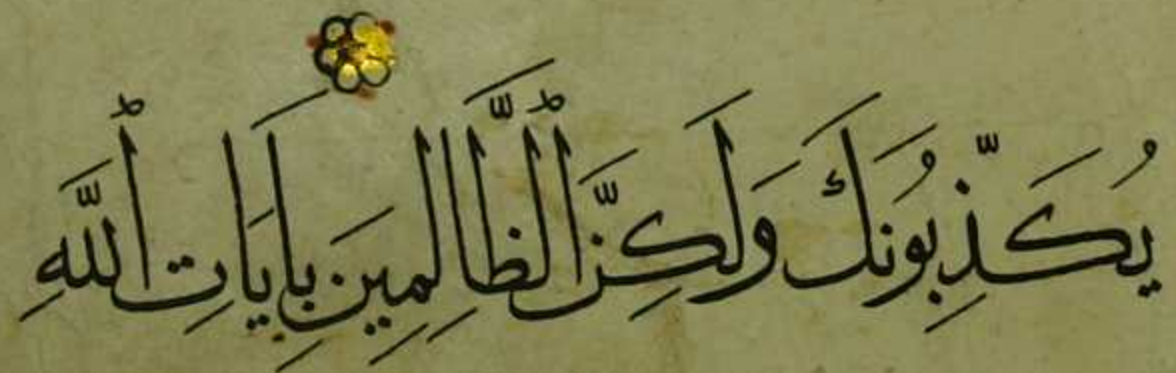 يُكَذِّبُونَكَ وَلَكِنَّ ٱلظَّالِمِينَ بِأَيَاتِ ٱللَّهِ